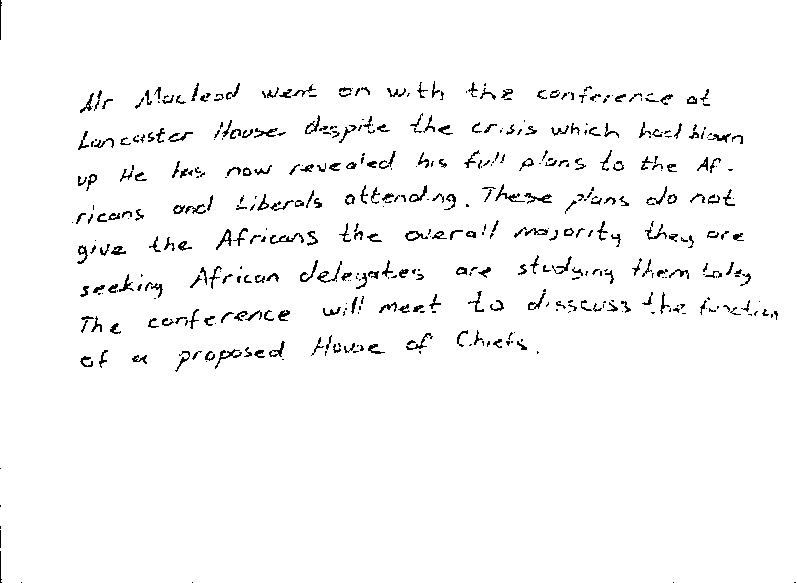 Mr Macleod went on with the conference at
Lancaster House despite the crisis which had blown
up He has now revealed his full plans to the Af-
ricans and Liberals attending. These plans do not
give the Africans the overall majority they are
seeking African delegates are studying them today
The conference will meet to disscuss the function
of a proposed House of Chiefs.